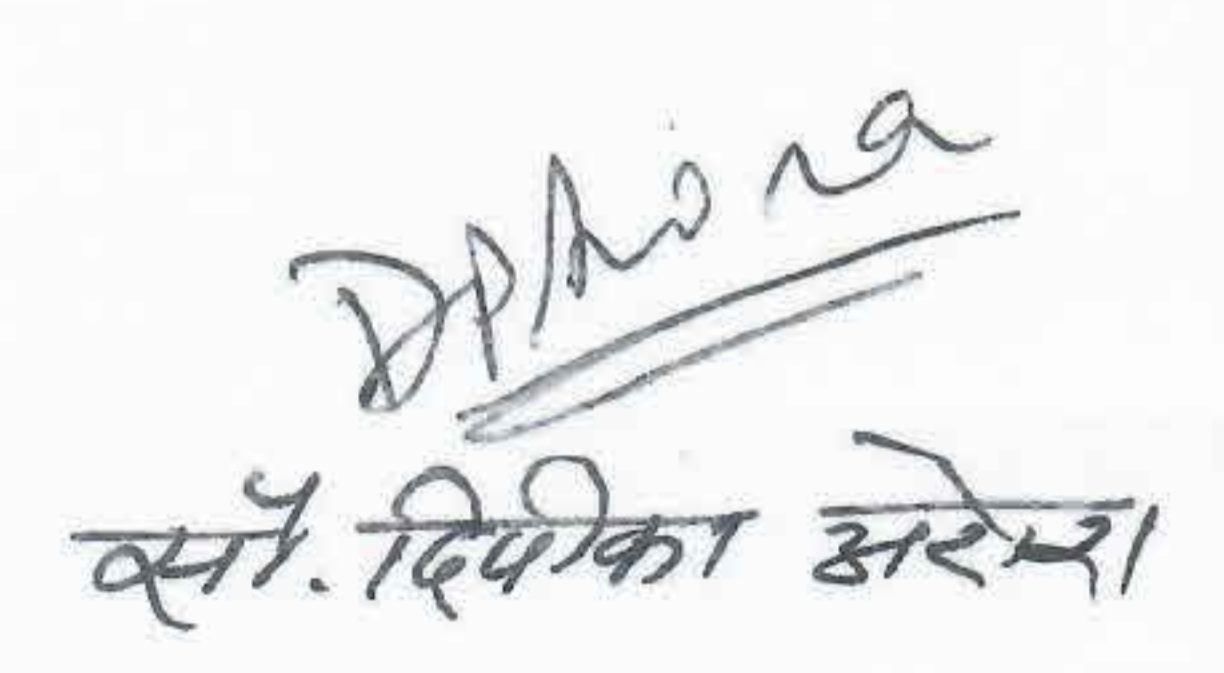 DPArora
सौ. दिपीका अरोरा